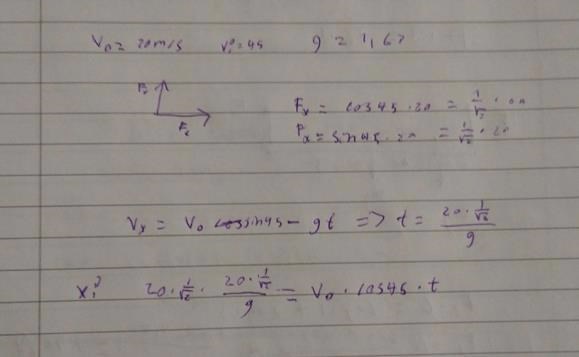 V₀ = 20m/s v° = 45 g = 1,62
Fₓ
Fₓ = cos45 · 20 = 1/√2 · 20
Fₓ
Fₓ = sin45 · 20 = 1/√2 · 20
Vₓ = V₀ sin45 - gt => t = (20 · 1/√2)/g
20 · 1/√2 · (20 · 1/√2)/g = V₀ · cos45 · t